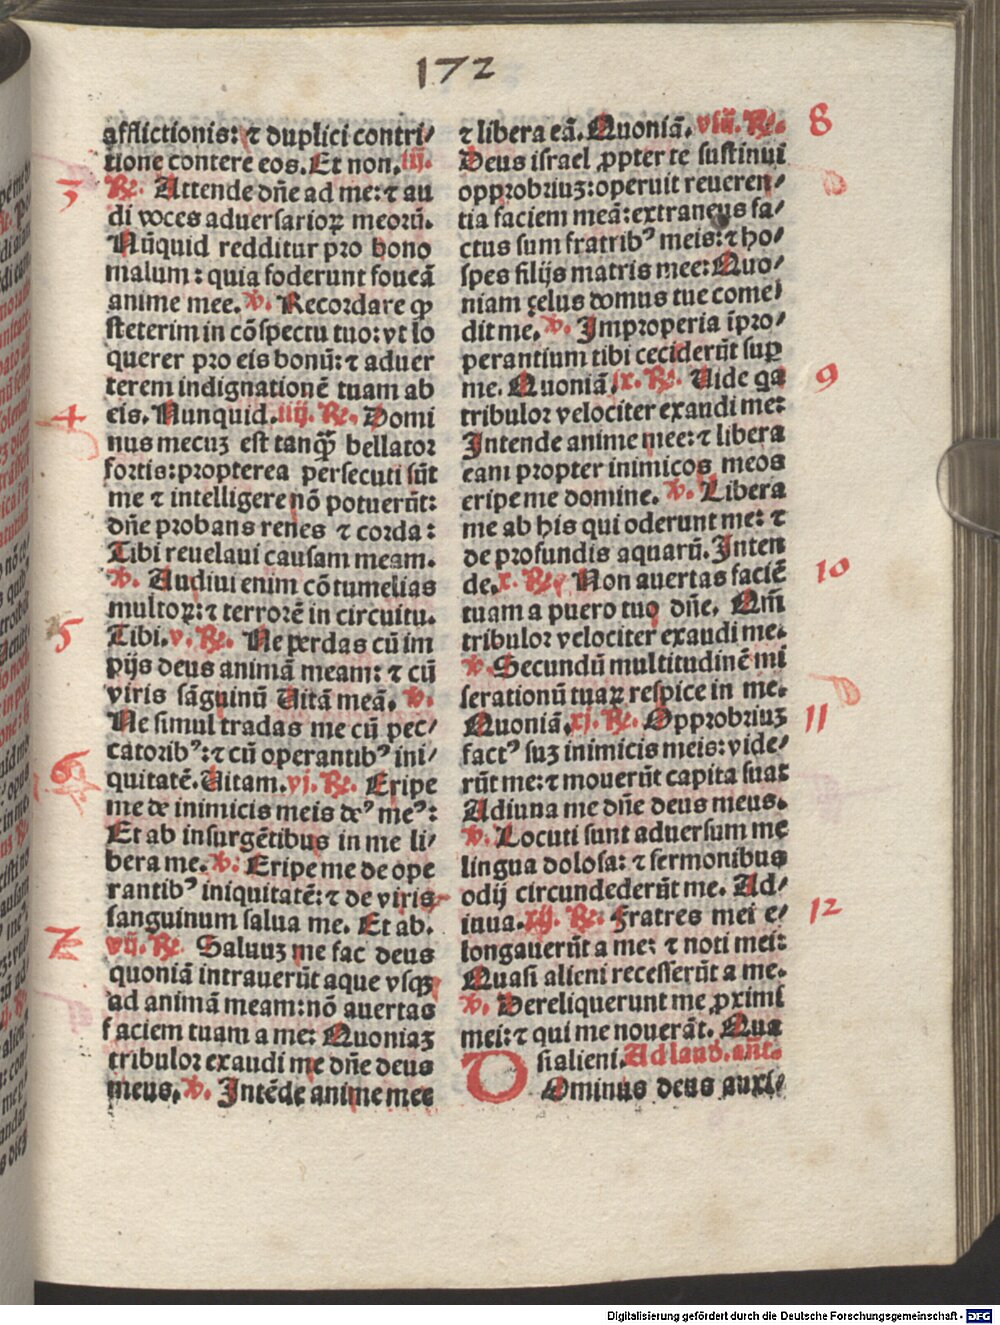 172
afflictionis: ⁊ duplici contri/
tione contere eos. Et non. iij.
3
R̷. Attende dñe ad me: ⁊ au
di voces aduersarioꝝ meorũ.
Nũquid redditur pro bono
malum: quia foderunt foueã
anime mee. v̷. Recordare ꝙ
steterim in cõspectu tuo: vt lo
querer pro eis bonũ: ⁊ aduer
terem indignationẽ tuam ab
4
eis. Nunquid. iiij. R̷. Domi
nus mecuꝫ est tanꝗ̃ bellator
fortis: propterea persecuti sũt
me ⁊ intelligere nõ potuerũt:
dñe probans renes ⁊ corda:
Tibi reuelaui causam meam.
v̷. Audiui enim cõtumelias
multoꝝ: ⁊ terrorẽ in circuitu.
5
Tibi. v. R̷. Ne perdas cũ im
pijs deus animã meam: ⁊ cũ
viris sãguinũ Uitã meã. v̷.
Ne simul tradas me cũ pec/
catoribꝰ: ⁊ cũ operantibꝰ ini/
6
quitatẽ. Uitam. vj. R̷. Eripe
me de inimicis meis deꝰ meꝰ:
Et ab insurgẽtibus in me li/
bera me. v̷: Eripe me de ope
rantibꝰ iniquitatẽ: ⁊ de viris
sanguinum salua me. Et ab.
7
vij. R̷. Saluuꝫ me fac deus
quoniã intrauerũt aque vsqꝫ
ad animã meam: nõ auertas
faciem tuam a me: Quoniaꝫ
tribulor exaudi me dñe deus
meus. v̷. Intẽde anime mee
⁊ libera eã. Quoniã. viij. R̷.
8
Deus israel ꝓpter te sustinui
opprobriuꝫ: operuit reueren/
tia faciem meã: extraneus fa/
ctus sum fratribꝰ meis: ⁊ ho/
spes filijs matris mee: Quo/
niam çelus domus tue come/
dit me. v̷. Improperia ĩpro/
perantium tibi ceciderũt suꝑ
me. Quoniã. ix. R̷. Uide qa
9
tribulor velociter exaudi me:
Intende anime mee: ⁊ libera
eam propter inimicos meos
eripe me domine. v̷. Libera
me ab his qui oderunt me: ⁊
de profundis aquarũ. Inten
de. x. R̷. Non auertas faciẽ
10
tuam a puero tuo dñe. Qm̃
tribulor velociter exaudi me.
v̷. Secundũ multitudinẽ mi
serationũ tuaꝝ respice in me.
Quoniã. xj. R̷. Opprobriuꝫ
11
factꝰ suꝫ inimicis meis: vide/
rũt me: ⁊ mouerũt capita sua:
Adiuua me dñe deus meus.
v̷. Locuti sunt aduersum me
lingua dolosa: ⁊ sermonibus
odij circundederũt me. Ad/
iuua. xij. R̷. Fratres mei e/
12
longauerũt a me: ⁊ noti mei:
Quasi alieni recesserũt a me.
v̷. Dereliquerunt me ꝓximi
mei: ⁊ qui me nouerãt. Qua
si alieni. Ad laud. añt.
Dominus deus auxi/
Digitalisierung gefördert durch die Deutsche Forschungsgemeinschaft - DFG